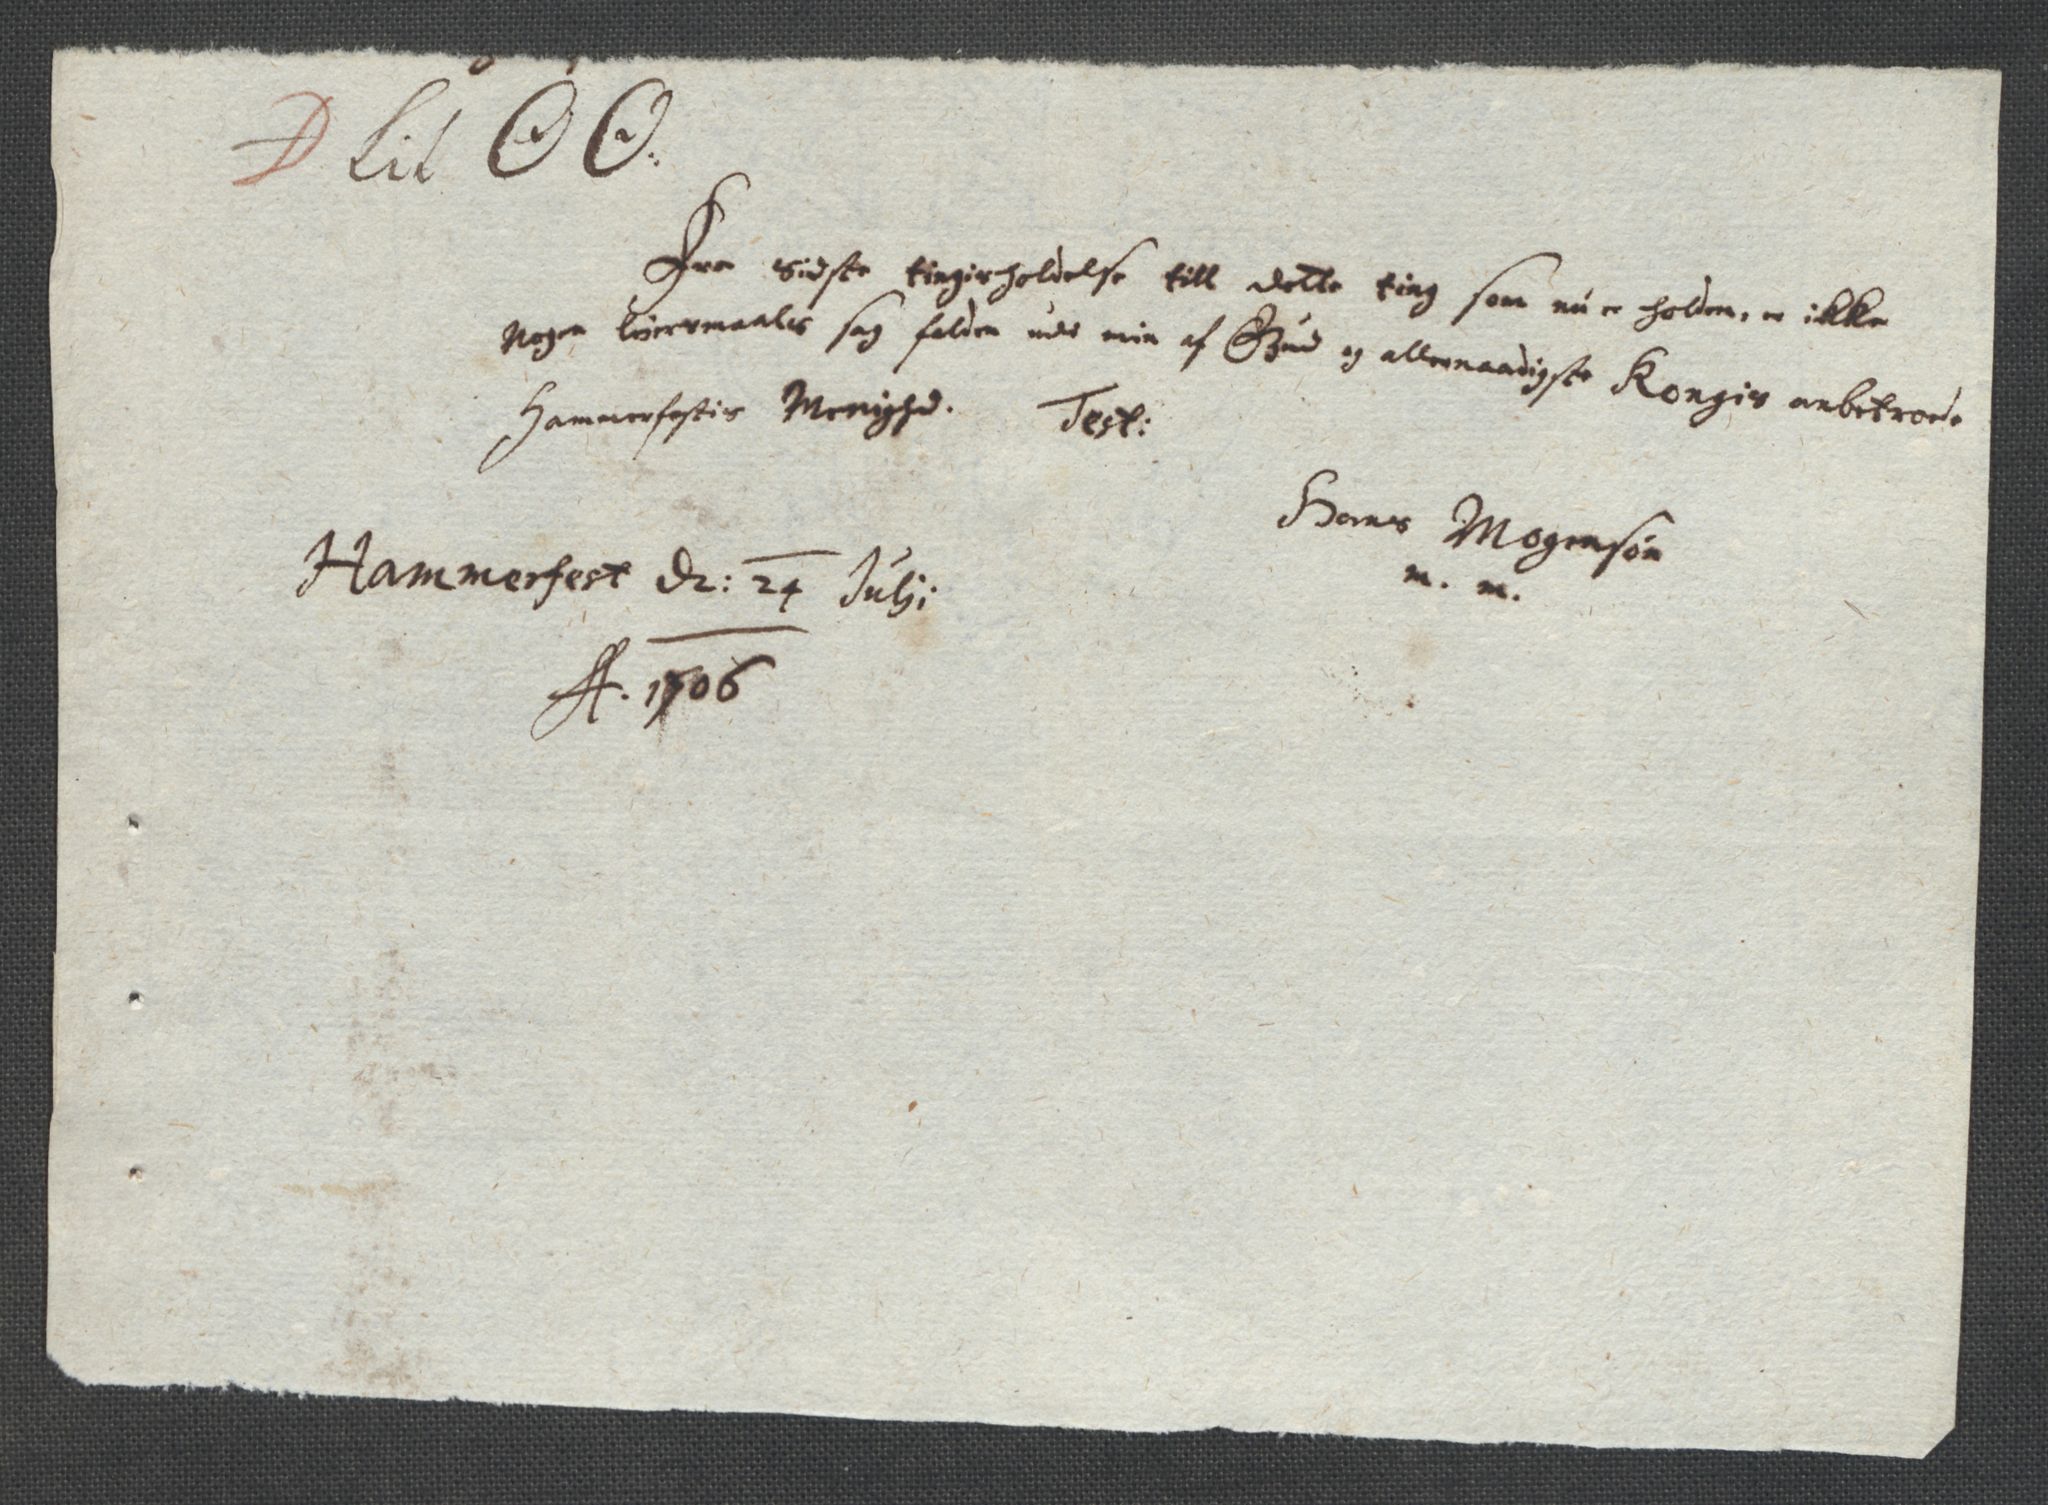 D Lit OO:
Fra Sidste tingisholdelse till dette ting som nu er holden, er ikke
Nogen leiermaalis sag falden udi min af Gud og allernaadigste Kongis anbetroede
Hammerfestis Menighd. Test:
Hans Mogensøn
m. m.
Hammerfest d: 24 Julij
A. 1706